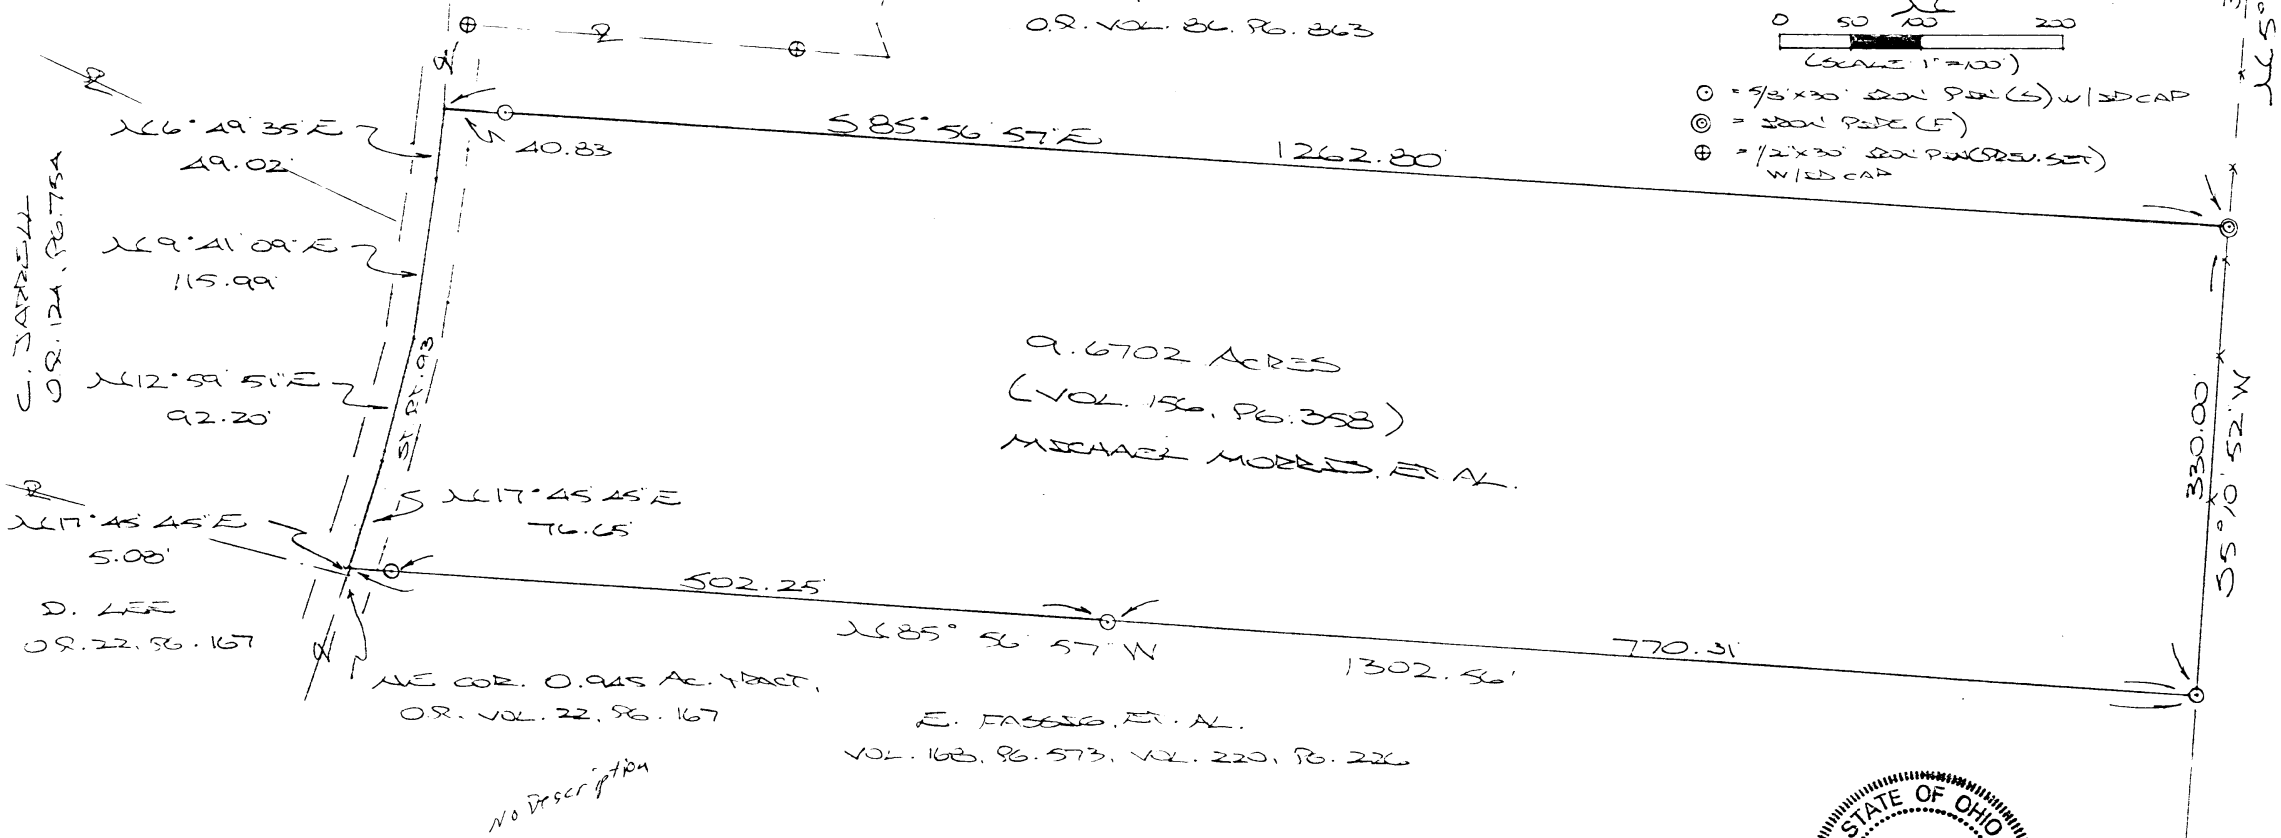 O.R. VOL. 86. PG. 863
0 50 100 200
(SCALE 1"=100')
= 5/8"x30" IRON PIN (S) W/ID CAP
= IRON PIPE (F)
= 1/2"x30" IRON PIN (PREV. SET)
W/ID CAP
N5°
N6°49'35"E
49.02'
40.83
S85°56'57"E
1262.80'
C. JARRELL
O.R. 124, PG. 754
N9°41'09"E
115.99'
N12°59'51"E
92.20'
ST. RT. 93
9.6702 ACRES
(VOL. 156, PG. 358)
MICHAEL MORRIS, ET AL.
330.00
S5°10'52"W
N17°45'45"E
5.08'
N17°45'45"E
76.65
D. LEE
O.R. 22, PG. 167
502.25
N85°56'57"W
1302.56'
770.31'
NE COR. 0.945 AC. TRACT,
O.R. VOL. 22, PG. 167
E. FASSIG, ET. AL.
VOL. 168, PG. 573, VOL. 220, PG. 226
No Description
STATE OF OHIO